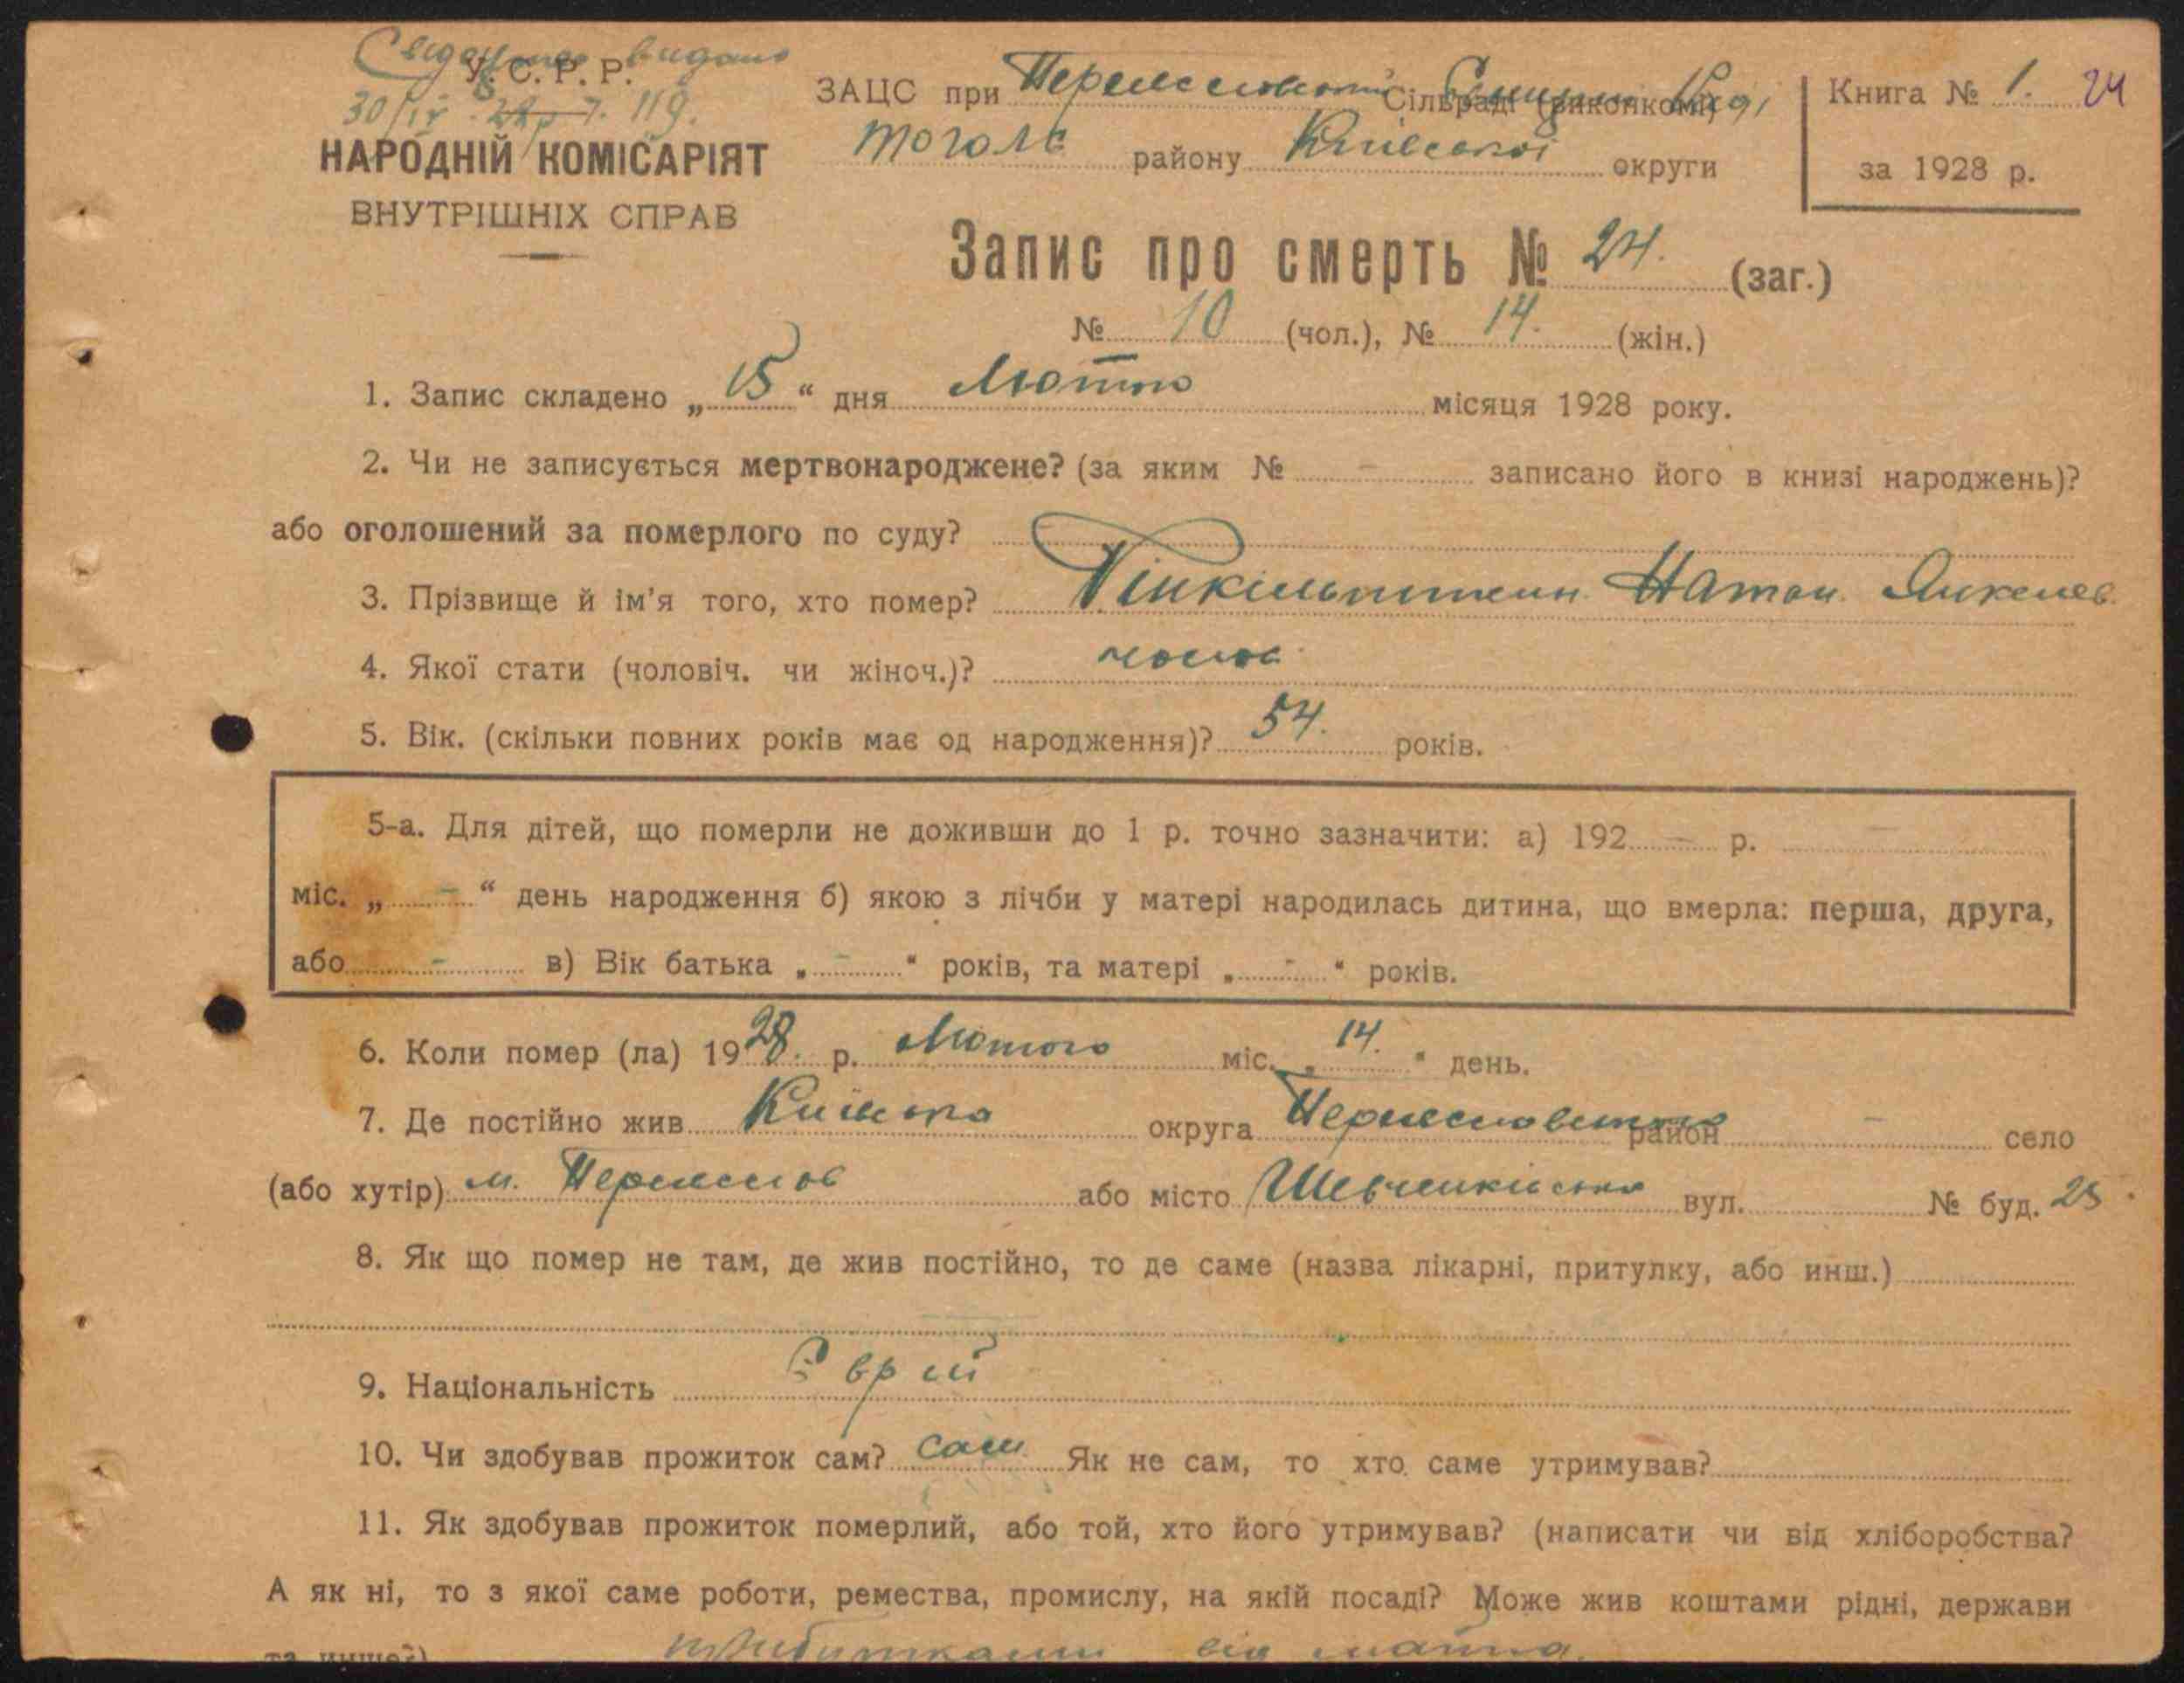 Свидоцтво видано
У. С. Р. Р.
НАРОДНІЙ КОМІСАРІЯТ
ВНУТРІШНІХ СПРАВ
ЗАЦС при Переяславській Сільраді (виконкомі)
того ж району Київської округи
Книга № 1. 24
за 1928 р.
Запис про смерть № 24. (заг.)
№ 10 (чол.), № 14. (жін.)
1. Запис складено „ 15 “ дня Лютого місяця 1928 року.
2. Чи не записується мертвонароджене? (за яким № - записано його в книзі народжень)?
або оголошений за померлого по суду?
3. Прізвище й ім'я того, хто помер? Натан Янкелев.
4. Якої стати (чоловіч. чи жіноч.)? чолов.
5. Вік. (скільки повних років має од народження)? 54. років.
5-а. Для дітей, що померли не доживши до 1 р. точно зазначити: а) 192 - р. -
міс. „ - “ день народження б) якою з лічби у матері народилась дитина, що вмерла: перша, друга,
або - в) Вік батька „ - “ років, та матері „ - “ років.
6. Коли помер (ла) 1928. р. Лютого міс. „ 14. “ день.
7. Де постійно жив Київська округа Переяславський район - село
(або хутір) м. Переяслов або місто Шевченківська вул. № буд. 25.
8. Як що помер не там, де жив постійно, то де саме (назва лікарні, притулку, або инш.)
9. Національність Єврей
10. Чи здобував прожиток сам? Сам Як не сам, то хто саме утримував?
11. Як здобував прожиток померлий, або той, хто його утримував? (написати чи від хліборобства?
А як ні, то з якої саме роботи, ремества, промислу, на якій посаді? Може жив коштами рідні, держави
та инше?) прибутками від майна.